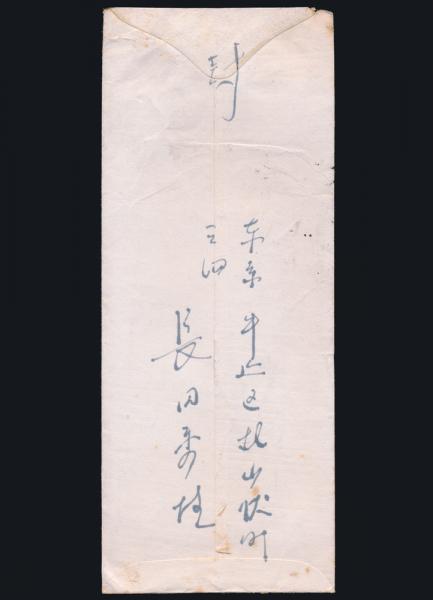 封
東京 牛込区北山伏町
三四
長田秀雄